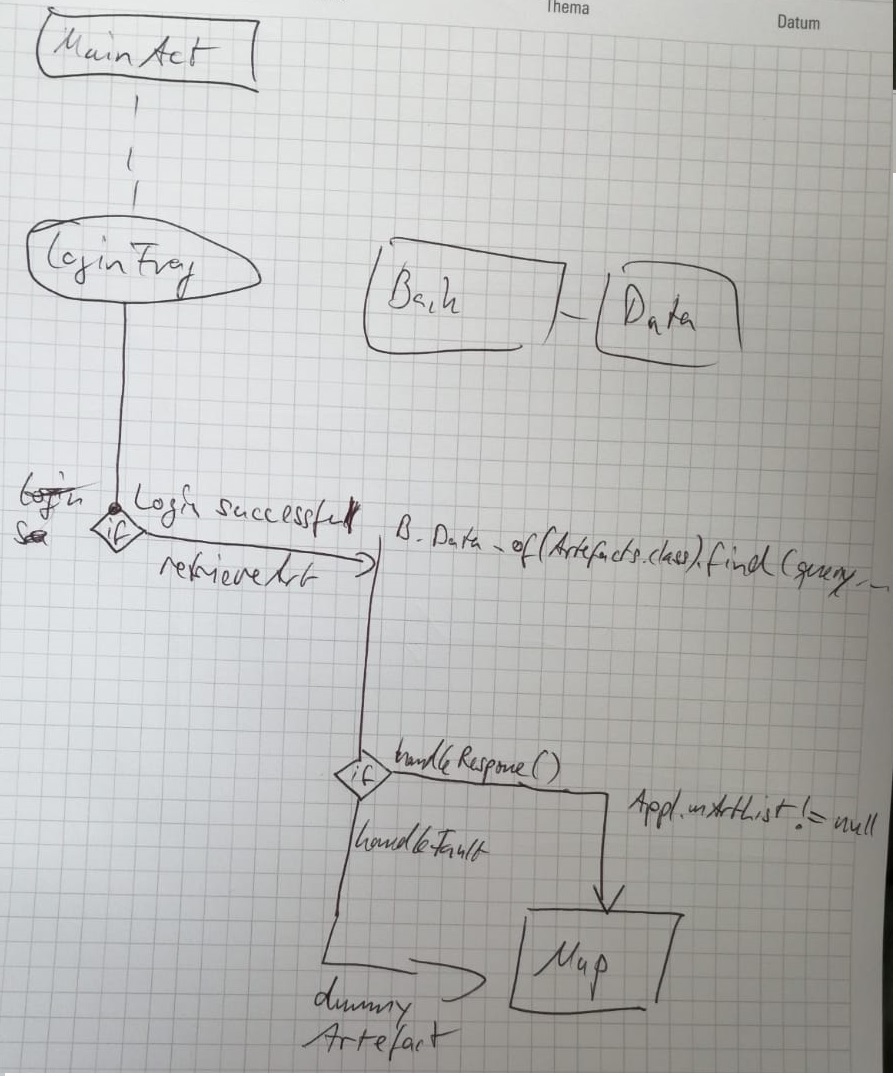 Thema
Datum
Main Act
Login Frag
Back
Data
Login
Login successfull
if
retrieveArt
B. Data.of(Artefacts.class).find(query...
if
handleRespone()
Appl.mArtList != null
handleFault
Map
dummy
Artefact